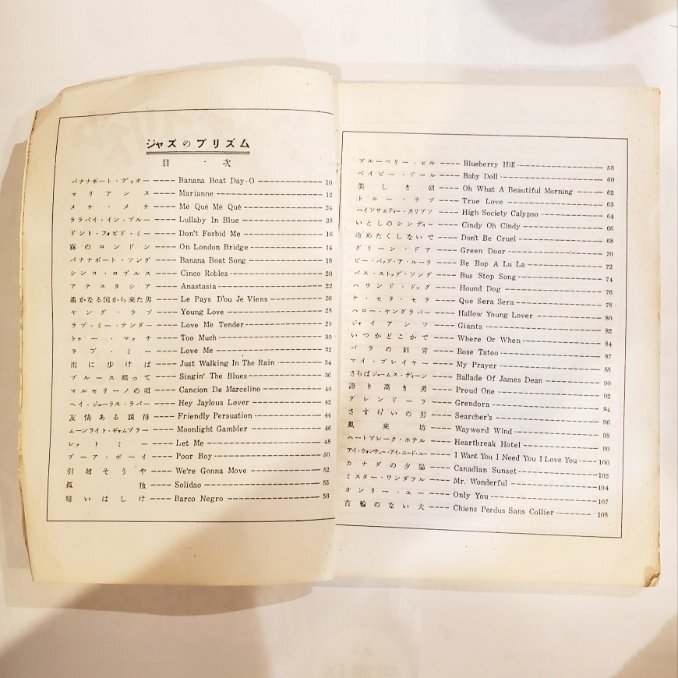 ジャズのプリズム
目・次
バナナボート・デイオー Banana Boat Day-O 10
マリアンヌ Marianne 12
メケ・メケ Mé Què Mè Què 24
ララバイ・イン・ブルー Lullaby In Blue 38
ドント・フォビド・ミー Don't Forbid Me 16
霧のロンドン On London Bridge 14
バナナボート・ソング Banana Boat Song 18
シンコ・ロブルス Cinco Robles 20
アナスタシア Anastasia 22
遙かなる国から来た男 Le Pays D'ou Je Viens 26
ヤング・ラブ Young Love 28
ラブ・ミー・テンダー Love Me Tender
トゥー・マッチ Too Much 30
ラブ・ミー Love Me 32
雨に歩けば Just Walking In The Rain 34
ブルース唄って Singin' The Blues 36
マルセリーノの唄 Cancion De Marcelino 40
ヘイ・ジェーラス・ラバー Hey Jaylous Lover 42
友情ある説得 Friendly Persuation 44
ムーンライト・ギャムブラー Moonlight Gambler 46
レット・ミー Let Me 48
プーア・ボーイ Poor Boy 50
引越そうや We're Gonna Move 52
孤独 Solidao 55
暗いはしけ Barco Negro 56
ブルーベリー・ヒル Blueberry Hill 58
ベイビー・ドール Baby Doll 60
美しき朝 Oh What A Beautiful Morning 62
トルー・ラブ True Love
ハイソサエティー・カリプソ High Society Calypso 64
いとしのシンディー Cindy Oh Cindy 66
冷めたくしないで Don't Be Cruel 68
グリーン・ドア Green Door 70
ビー・バップ・ア・ルーラ Be Bop A Lu La 72
バス・ストップ・ソング Bus Stop Song 74
ハウンド・ドッグ Hound Dog 76
ケ・セラ・セラ Que Sera Sera 78
ハロー・ヤングラバー Hallow Young Lover 80
ジャイアンツ Giants 82
いつかどこかで Where Or When 84
バラの刺青 Rose Tatoo 87
マイ・プレイヤー My Prayer 88
さらばジェームス・ディーン Ballade Of James Dean 90
誇り高き男 Proud One 92
グレンドーラ Grendora 94
さすらいの男 Searcher's 96
風来坊 Wayword Wind 98
ハートブレーク・ホテル Heartbreak Hotel 99
アイ・ウォンチュー・アイ・ニード・ユー I Want You I Need You I Love You 100
カナダの夕陽 Canadian Sunset 102
ミスター・ワンダフル Mr. Wonderful 104
オンリー・ユー Only You 107
首輪のない犬 Chiens Perdus Sans Collier 108